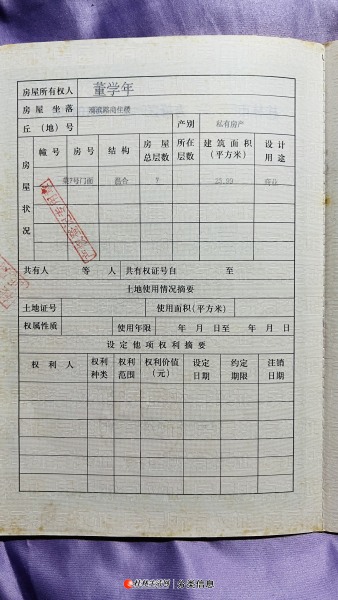 房屋所有权人 董学年
房屋坐落 商住楼
丘（地）号 产别 私有房产
房屋状况 幢号 房号 结构 房屋总层数 所在层数 建筑面积（平方米） 设计用途
第7号门面 混合 7 23.99 商业
共有人 等 人 共有权证号自 至
土地使用情况摘要
土地证号 使用面积（平方米）
权属性质 使用年限 年 月 日至 年 月 日
设定他项权利摘要
权利人 权利种类 权利范围 权利价值（元） 设定日期 约定期限 注销日期
桂林生活网 | 分类信息